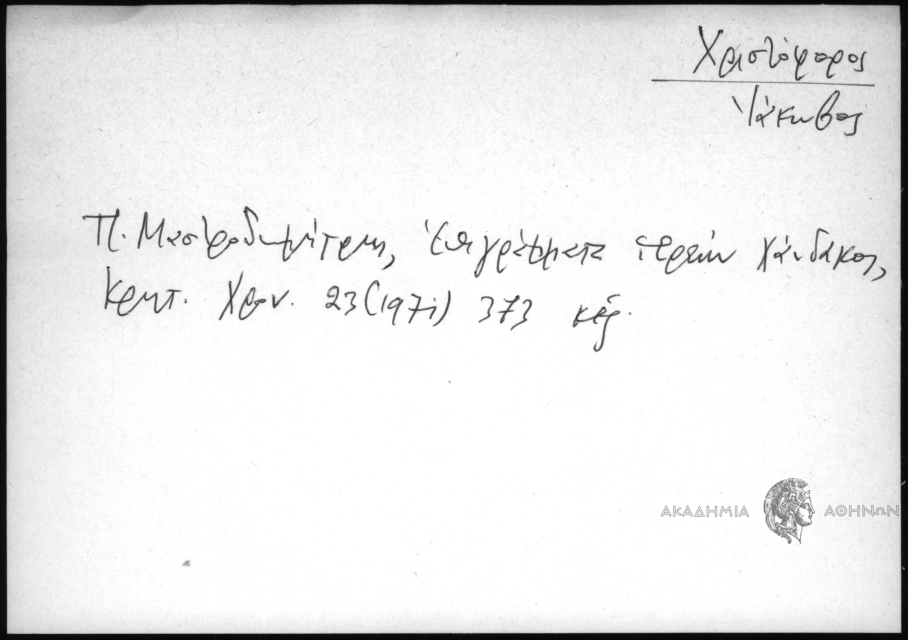 Χριστόφορος
Ἰάκωβος
Π. Μαστροδημήτρης, Ἐπιγράμματα ἱερέων Χάνδακος,
Κρητ. Χρον. 23 (1971) 373 κἑξ.
ΑΚΑΔΗΜΙΑ ΑΘΗΝΩΝ